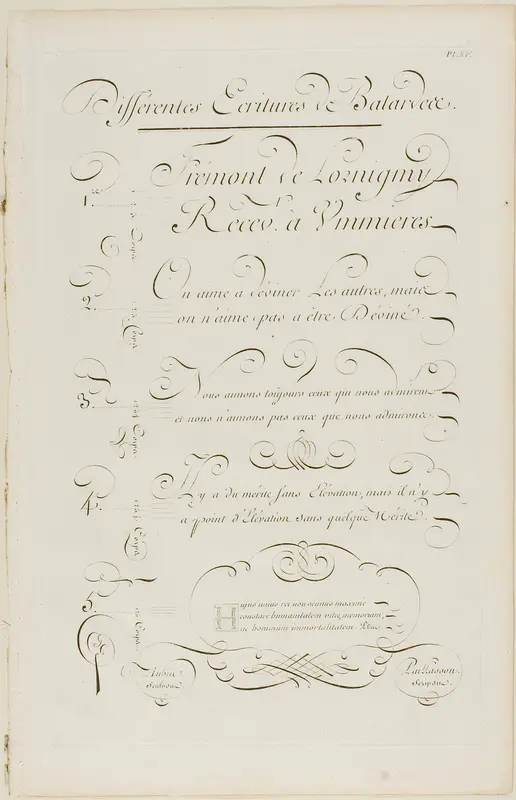 Pl. XV.
Differentes Ecritures de Batardeee.
1.
Fremont de Lornigmy
Recev.r à Vmmieres
2.
On aime a déviner Les autres, maie
on n'aime pas a être Déviné.
3.
Nous aimons toujours ceux qui nous admirent
et nous n'aimons pas ceux que nous admirons.
4.
Il y a du mérite sans Elévation, mais il n'y
a point d'Elévation sans quelque Mérite.
5.
Hujus unius rei non omnino maxime
constare humanitatem vitæ, memoriam,
ac hominum immortalitatem
Aubin
Sculpsit
Paillasson
Scripsit.